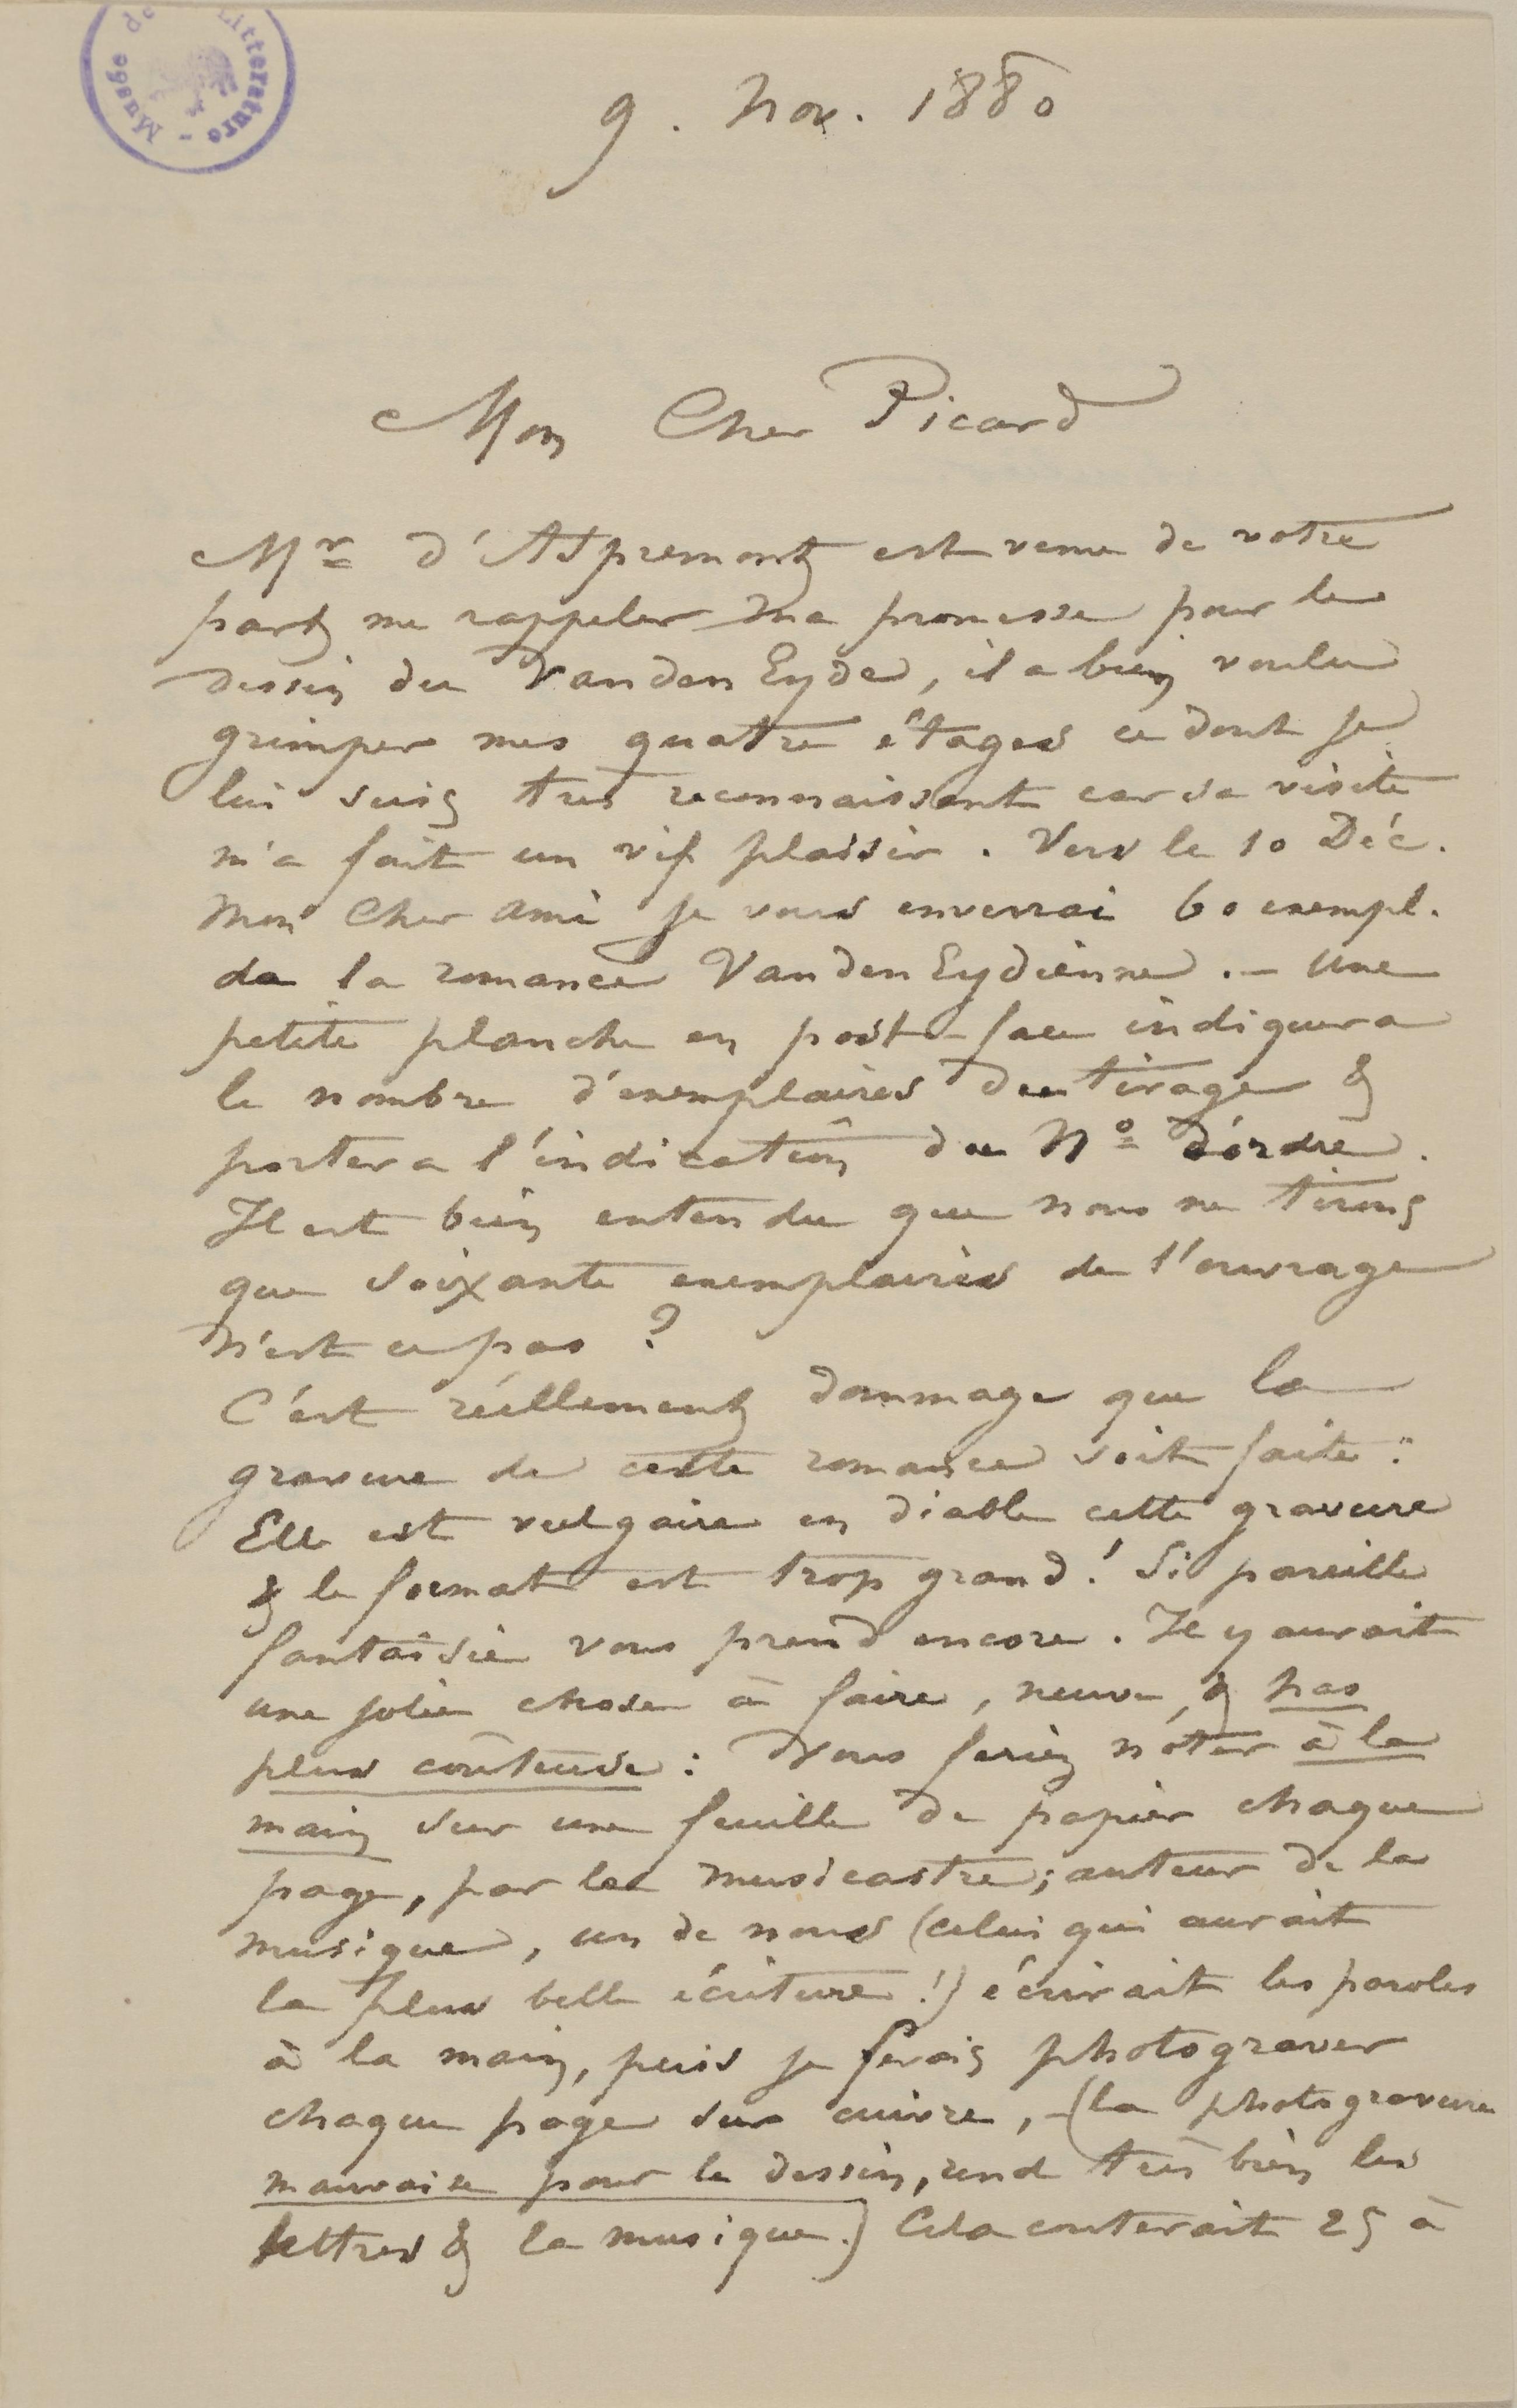 Musée de Littérature -
9. Nov. 1880
Mon Cher Picard
Mr d'Aspremont est venu de votre
part me rappeler ma promesse pour le
dessin du Vanden Eyde, il a bien voulu
grimper mes quatre étages ce dont je
lui suis très reconnaissant car sa visite
m'a fait un vif plaisir. Vers le 10 Déc.
Mon Cher ami je vous enverrai 60 exempl.
de la romance Vanden Eydienne. — Une
petite planche en post-face indiquera
le nombre d'exemplaires du tirage &
portera l'indication du No d'ordre.
Il est bien entendu que nous ne tirons
que soixante exemplaires de l'ouvrage
n'est ce pas ?
C'est réellement dommage que la
gravure de cette romance soit faite :
Elle est vulgaire en diable cette gravure
& le format est trop grand ! Si pareille
fantaisie vous prend encore. Il y aurait
une jolie chose à faire, neuve, & pas
plus coûteuse : Vous feriez nôter à la
main sur une feuille de papier chaque
page, par le musicastre; auteur de la
musique, un de nous (celui qui aurait
la plus belle écriture !) écrirait les paroles
à la main, puis je ferais photograver
chaque page sur cuivre, - (la photogravure
mauvaise pour le dessin, rend très bien les
lettres & la musique.) Cela couterait 25 à